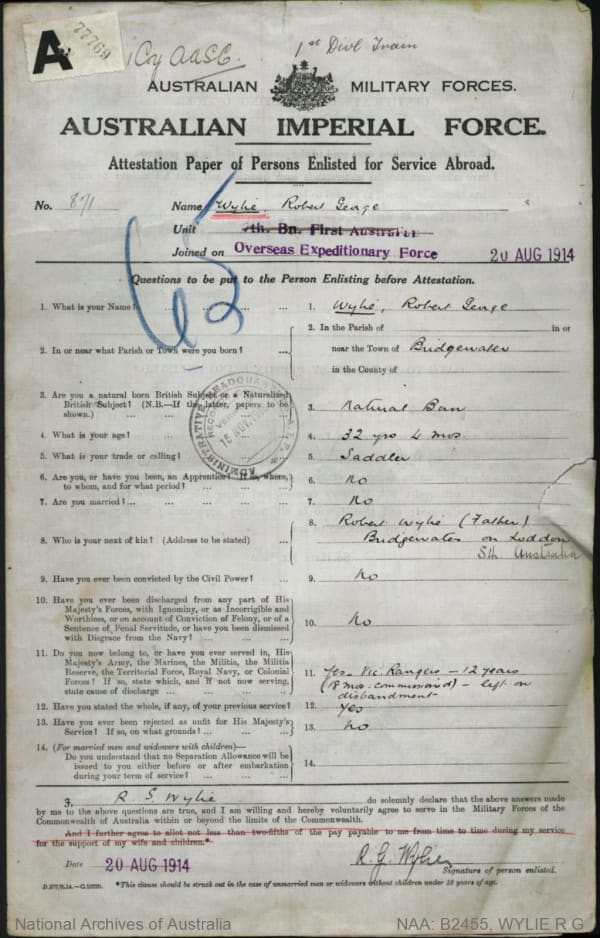 A 77769
1 Coy AASC. 1st Divl Train
AUSTRALIAN MILITARY FORCES.
AUSTRALIAN IMPERIAL FORCE.
Attestation Paper of Persons Enlisted for Service Abroad.
No. 871 Name Wylie, Robert George
Unit 7th. Bn. First Australian
Joined on Overseas Expeditionary Force 20 AUG 1914
Questions to be put to the Person Enlisting before Attestation.
1. What is your Name? ... 1. Wylie, Robert George
2. In or near what Parish or Town were you born? ... 2. In the Parish of in or
near the Town of Bridgewater
in the County of
3. Are you a natural born British Subject or a Naturalized
British Subject? (N.B.—If the latter, papers to be
shown.) ... 3. Natural Born
4. What is your age? ... 4. 32 yrs 4 mos.
5. What is your trade or calling? ... 5. Saddler
6. Are you, or have you been, an Apprentice? If so, where,
to whom, and for what period? ... 6. No
7. Are you married? ... 7. No
8. Who is your next of kin? (Address to be stated) ... 8. Robert Wylie (Father)
Bridgewater on Loddon
Sth Australia
9. Have you ever been convicted by the Civil Power? ... 9. No
10. Have you ever been discharged from any part of His
Majesty's Forces, with Ignominy, or as Incorrigible and
Worthless, or on account of Conviction of Felony, or of a
Sentence of Penal Servitude, or have you been dismissed
with Disgrace from the Navy? ... 10. No
11. Do you now belong to, or have you ever served in, His
Majesty's Army, the Marines, the Militia, the Militia
Reserve, the Territorial Force, Royal Navy, or Colonial
Forces? If so, state which, and if not now serving,
state cause of discharge ... 11. Yes – Vic. Rangers – 12 years
(18 mos. commissioned) – left on
disbandment
12. Have you stated the whole, if any, of your previous service? 12. Yes
13. Have you ever been rejected as unfit for His Majesty's
Service? If so, on what grounds? ... 13. No
14. (For married men and widowers with children)—
Do you understand that no Separation Allowance will be
issued to you either before or after embarkation
during your term of service? ... 14.
I, R. G. Wylie do solemnly declare that the above answers made
by me to the above questions are true, and I am willing and hereby voluntarily agree to serve in the Military Forces of the
Commonwealth of Australia within or beyond the limits of the Commonwealth.
And I further agree to allot not less than two-fifths of the pay payable to me from time to time during my service
for the support of my wife and children.*
Date 20 AUG 1914 R. G. Wylie
Signature of person enlisted.
*This clause should be struck out in the case of unmarried men or widowers without children under 18 years of age.
National Archives of Australia NAA: B2455, WYLIE R G